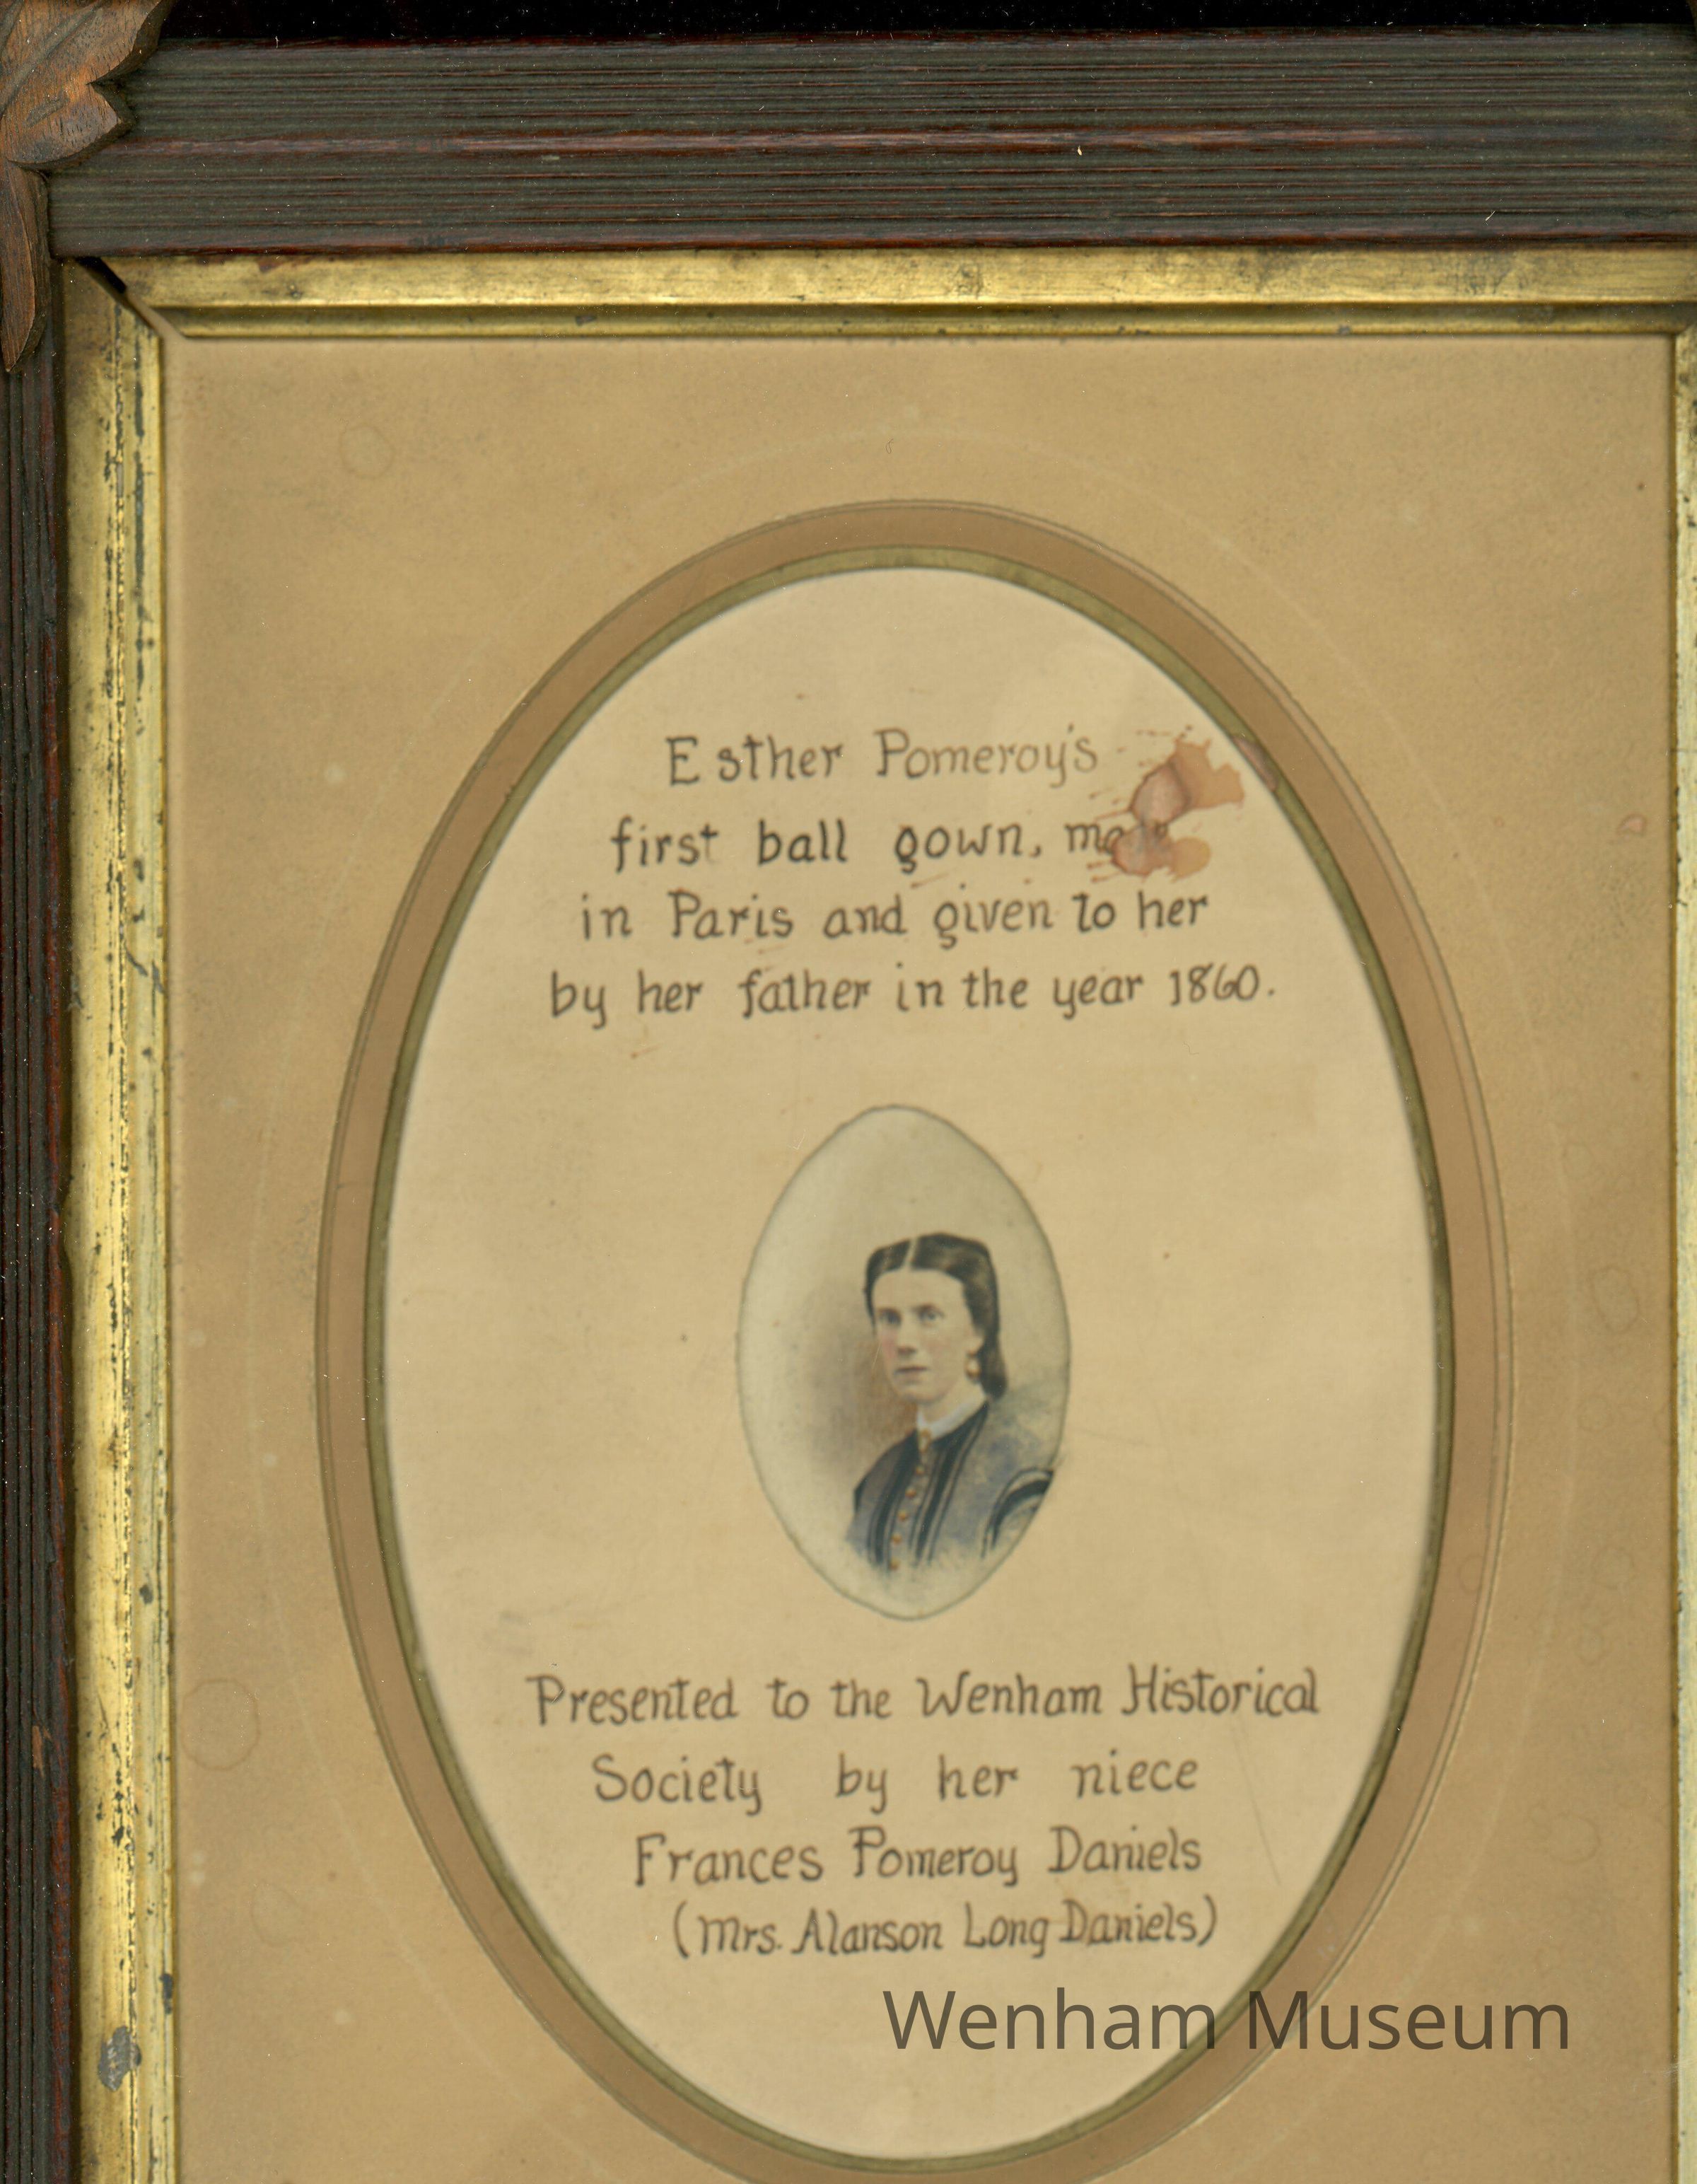 Esther Pomeroy's
first ball gown, made
in Paris and given to her
by her father in the year 1860.
Presented to the Wenham Historical
Society by her niece
Frances Pomeroy Daniels
(Mrs. Alanson Long Daniels)
Wenham Museum